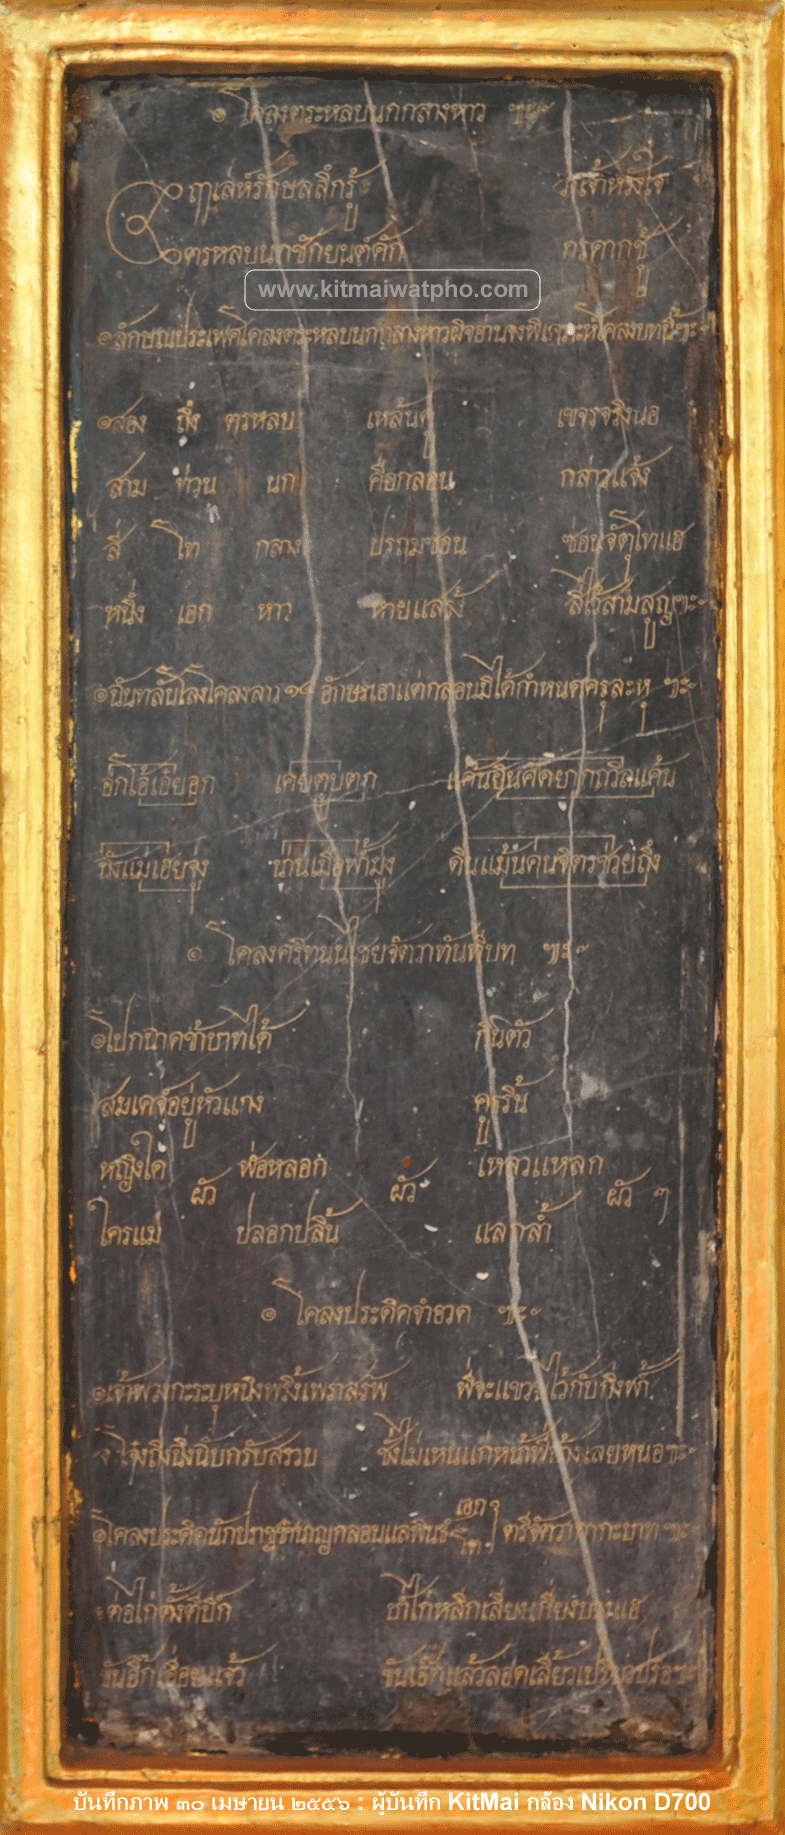 ๏ โคลงตระหลบนกกลางหาว ฯะ๛
ฤๅเล่ห์รักษลลึกรู้ ว่าเจ้าหวังใจ
ตรหลบนกชักยนต์คัก กรคากชู้
www.kitmaiwatpho.com
๏ลักษณประเภศโคลงตระหลบนกกลางหาวผิจอ่านจง โคลงบทนี้ฯะ๛
๏สอง ถึ่ง ตรหลบ เหล้นตู เขจรจริงนอ
สาม ท่วน นก คือกลอน กล่าวแจ้ง
สี่ โท กลาง ปรถมซอน ซ่อนจัตุโทแฮ
หนึ่ง เอก หาว หายแสลง สี่ไว้สามสูญฯะ๛
๏นันทลั่นโลงโคลงลาว ๑๔ อักษรเอาแต่กลอนมิได้กำหนดครุละหุ ฯะ๛
อกโอ้เอ๋ยอก เคยตูบตภ แค้นยืนคิดยากถวิลแค้น
ถึงแม่เฮยจูง น่านเมือฟ้ามูง ดินแม้นค่นจิตรช่วยถึง
๏ โคลงศรีทนนไชยจัตวาทันฑีบท ฯะ๛
๏โปกนาคช้าบาทได้ กินตัว
สมเดจ์อยู่หัวแกง คูธริ้น
หญิงใด พ่อหลอก เหลวแหลก
ผัว ผัว ผัว ๆ
ใครแม่ ปลอกปลิ้น แลกล้ำ
๏ โคลงประดิศจำธวด ฯะ๛
๏เจ้าพวงกะระบุหนิงพริ้งเพราสรัพ พี่จะแขวนไว้กับกิ่งฟ้า
โจ๋งถึ่งนึ่งนับกรับสรวบ ซั้งไม่เหนแก่หน้าพี่บ้างเลยหนอฯะ๛
๏โคลงประดิดนักปราชูชิเภญกลอนแลพินธุ์ เอก โท ตรีจัตวากากะบาทฯะ๛
ต่อไก่ตั้งตีปีก ป่าไก่หลีกเสียง แฮ
ขันอี๊กเอื่อยแจ้ว ขันเอ้กแล้วลอดเลี้ยว
บันทึกภาพ ๓๐ เมษายน ๒๕๕๖ : ผู้บันทึก KitMai กล้อง Nikon D700